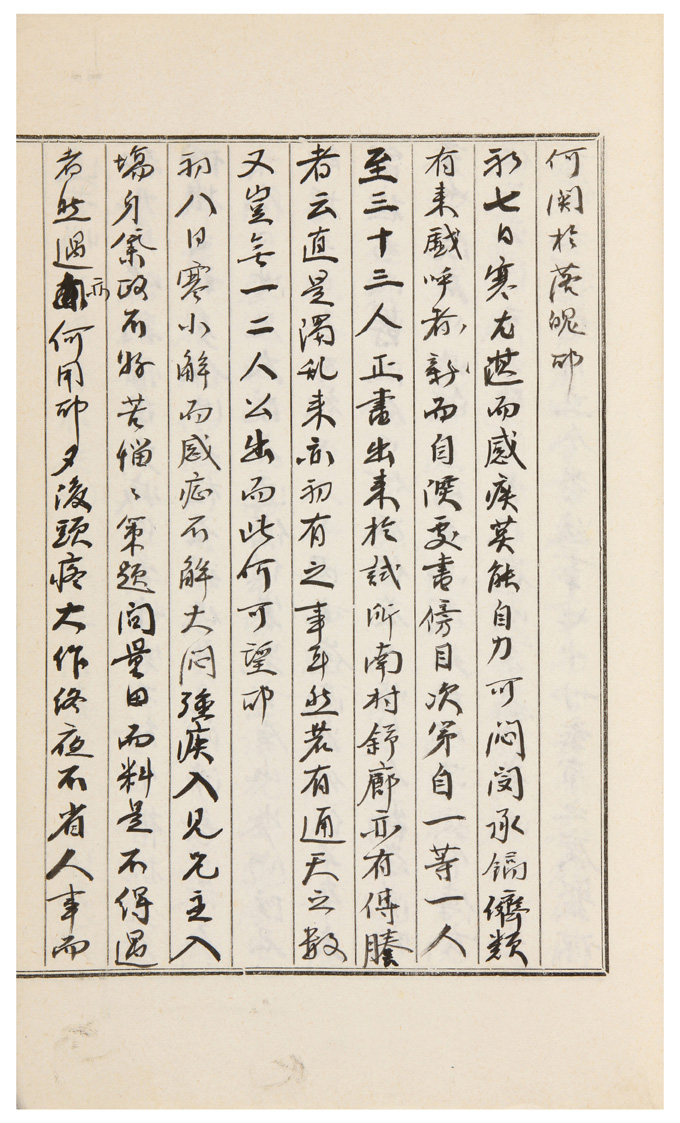 何関於落魄耶
初七日寒尤甚而感疾莫能自力可悶閔承鎬儕類
有来戲呼者新而自漢更書傍目次第自一等一人
至三十三人正書出来於試所南村舒廊亦有傳謄
者云直是濁乱来亦初有之事耳然若有通天之数
又豈無一二人公出而此何可望耶
初八日寒小解而感症不解大悶強疾入見兄主入
場身氣政不好苦惱〻策題問量田而料是不得過
者然過亦何用耶夕後頭疼大作終夜不省人事而